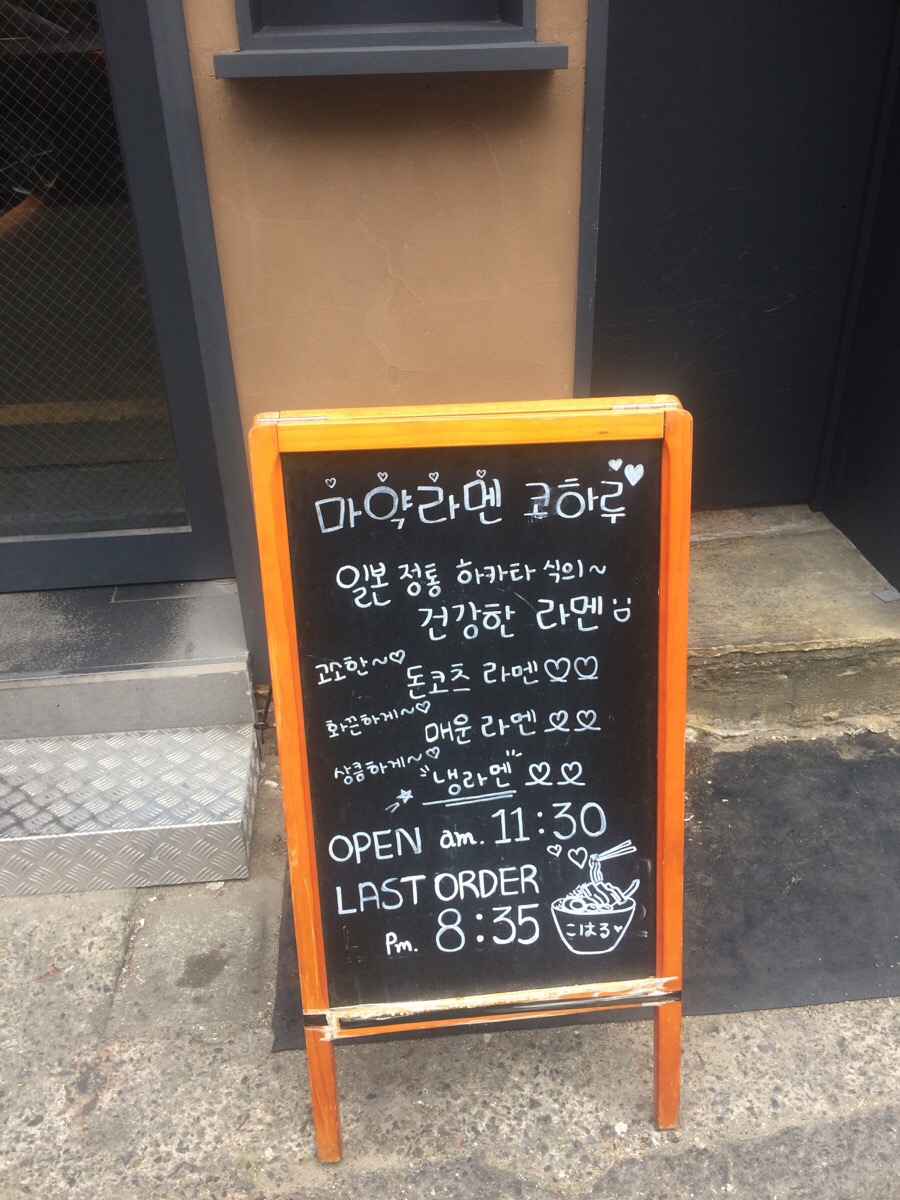 마약라멘 코하루
일본 정통 하카타 식의~
건강한 라멘
고소한~♡ 돈코츠 라멘♡♡
화끈하게~♡ 매운 라멘♡♡
상큼하게~♡ "냉라멘" ♡♡
OPEN am. 11:30
LAST ORDER
Pm. 8:35
こはる♡